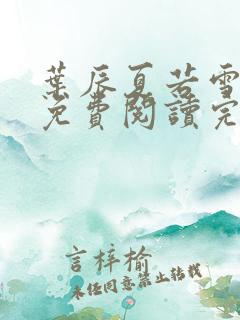 葉辰夏若雪
免費閱讀完
言梓榆
未任同意禁止轉載